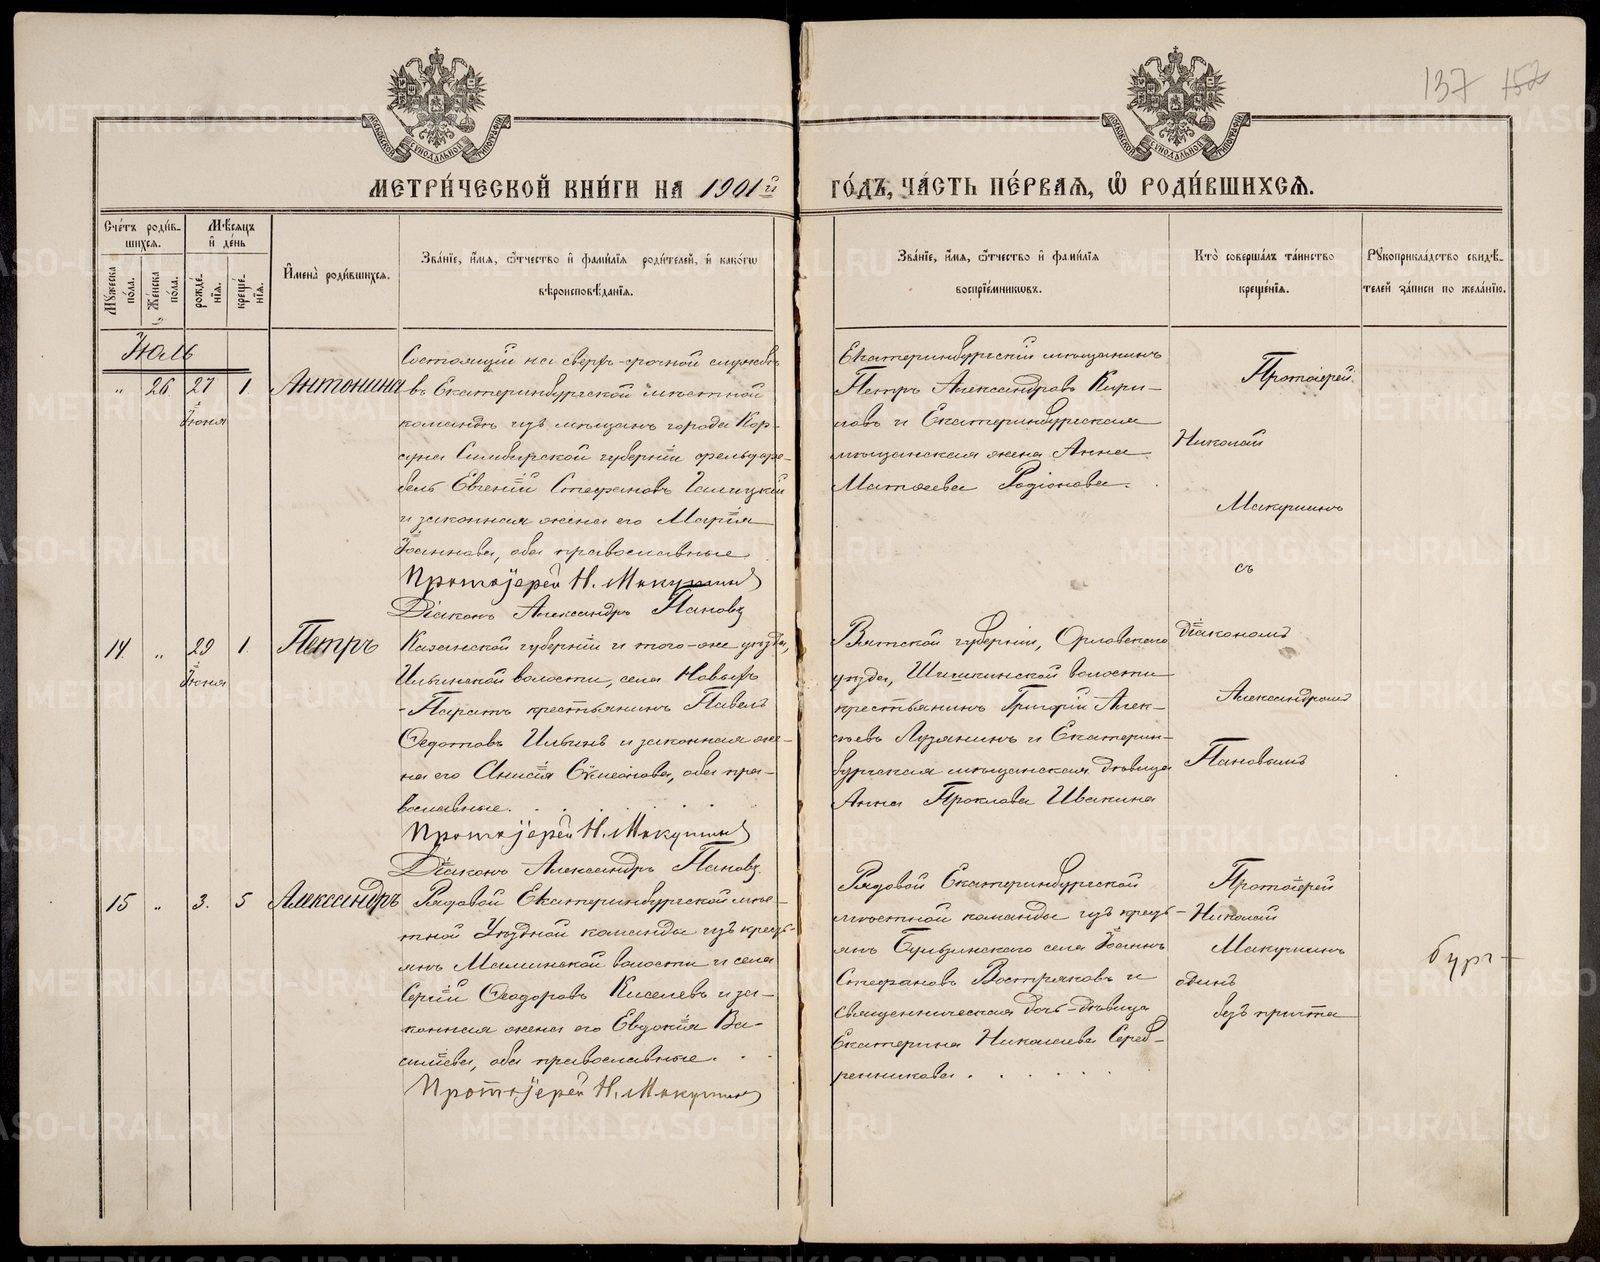 137 157
МОСКОВСКОЙ СѴНОДАЛЬНОЙ ТИПОГРАФІИ
МОСКОВСКОЙ СѴНОДАЛЬНОЙ ТИПОГРАФІИ
МЕТРИ́ЧЕСКОЙ КНИ́ГИ НА 1901й ГО́ДЪ, ЧА́СТЬ ПЕ́РВАЯ, Ѽ РОДИ́ВШИХСЯ.
Сче́тъ роди́в-
шихся.
Мѣ́сяцъ
и҆ де́нь
Мꙋ́жеска по́ла.
Же́нска по́ла.
рожде́-
нїя.
креще́-
нїя.
И҆мена̀ роди́вшихся.
Зва́нїе, и҆́мя, ѻ҆́тчество и҆ фами́лїя роди́телей, и҆ како́гѡ
вѣроисповѣ́данїя.
Зва́нїе, и҆́мя, ѻ҆́тчество и҆ фами́лїя
воспрїе́мниковъ.
Кто̀ соверша́лъ та́инство
креще́нїя.
Рꙋкоприкла́дство свидѣ́-
телей за́писи по жела́нїю.
Іюль
„ 26 27 1 Антонина
Іюня
Состоящій на сверхъ-срочной службѣ
въ Екатеринбургской мѣстной
командѣ изъ мѣщанъ города Кор-
суна Симбирской губерніи фельдфе-
бель Евгеній Стефановъ Галицкій
и законная жена его Марія
Іоаннова, оба православные
Протоіерей Н. Макушинъ
Діаконъ Александръ Пановъ
Екатеринбургскій мѣщанинъ
Петръ Александровъ Кири-
ловъ и Екатеринбургская
мѣщанская жена Анна
Матѳеева Родіонова.
Протоіерей
Николай
Макушинъ
съ
діакономъ
Александромъ
Пановымъ
14 „ 29 1 Петръ
Іюня
Казанской губерніи и того-же уѣзда,
Ильинской волости, села Новыхъ
-Паратъ крестьянинъ Павелъ
Ѳедотовъ Ильинъ и законная же-
на его Анисія Сѵмеонова, оба пра-
вославные.
Протоіерей Н. Макушинъ
Діаконъ Александръ Пановъ
Вятской губерніи, Орловскаго
уѣзда, Шишкинской волости
крестьянинъ Григорій Алек-
сѣевъ Лузянинъ и Екатерин-
бургская мѣщанская дѣвица
Анна Проклова Ивакина
15 „ 3. 5 Александръ
Рядовой Екатеринбургской мѣс-
тной Уѣздной команды изъ кресть-
янъ Маминской волости и села
Сергій Ѳеодоровъ Киселевъ и за-
конная жена его Евдокія Ва-
сильева, оба православные.
Протоіерей Н. Макушинъ
Рядовой Екатеринбургской
мѣстной команды изъ кресть-
янъ Бульзинскаго села Іоаннъ
Стефановъ Востряковъ и
священническая дочь-дѣвица
Екатерина Николаева Сереб-
ренникова.
Протоіерей
Николай
Макушинъ
одинъ
безъ причта